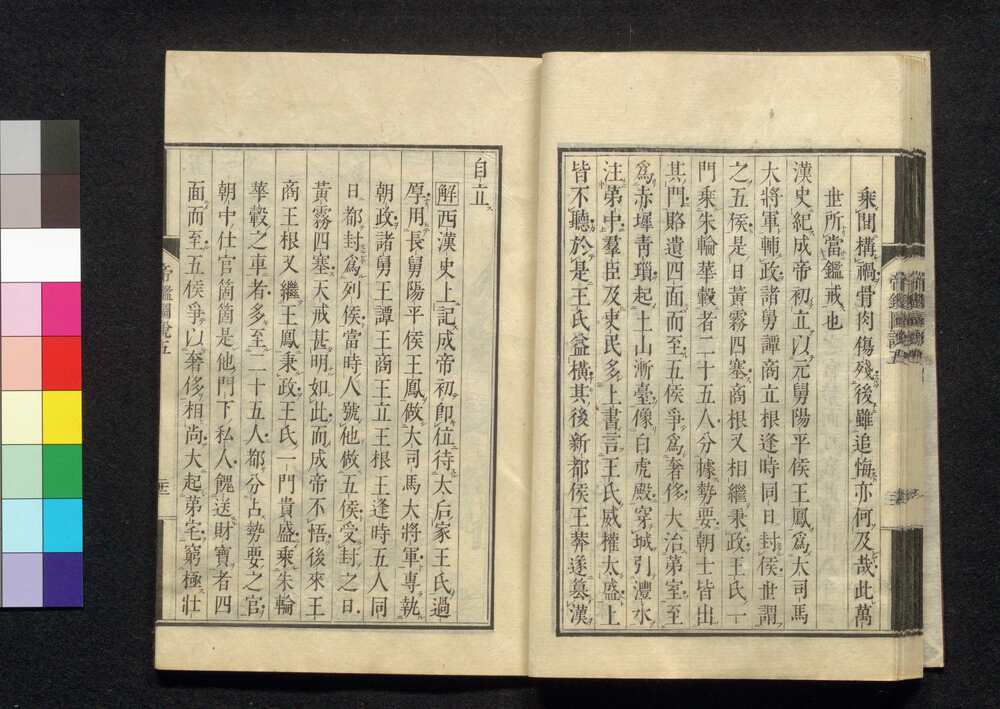 乘間構禍骨肉傷殘後雖追悔亦何及哉此萬
世所當鑑戒也
漢史紀成帝初立以元舅陽平侯王鳳爲大司馬
大將軍輔政諸舅譚商立根逢時同日封侯世謂
之五侯是日黃霧四塞商根又相繼秉政王氏一
門乘朱輪華轂者二十五人分據勢要朝士皆出
其門賂遺四面而至五侯爭爲奢侈大治第室至
爲赤墀青瑣起土山漸臺像白虎殿穿城引灃水
注第中羣臣及吏民多上書言王氏威權太盛上
皆不聽於是王氏益橫其後新都侯王莽遂篡漢
自立
解西漢史上記成帝初卽位待太后家王氏過
厚用長舅陽平侯王鳳做大司馬大將軍專執
朝政諸舅王譚王商王立王根王逢時五人同
日都封爲列侯當時人號他做五侯受封之日
黃霧四塞天戒甚明如此而成帝不悟後來王
商王根又繼王鳳秉政王氏一門貴盛乘朱輪
華轂之車者多至二十五人都分占勢要之官
朝中仕官箇箇是他門下私人餽送財寶者四
面而至五侯爭以奢侈相尚大起第宅窮極壯
帝鑑圖說五